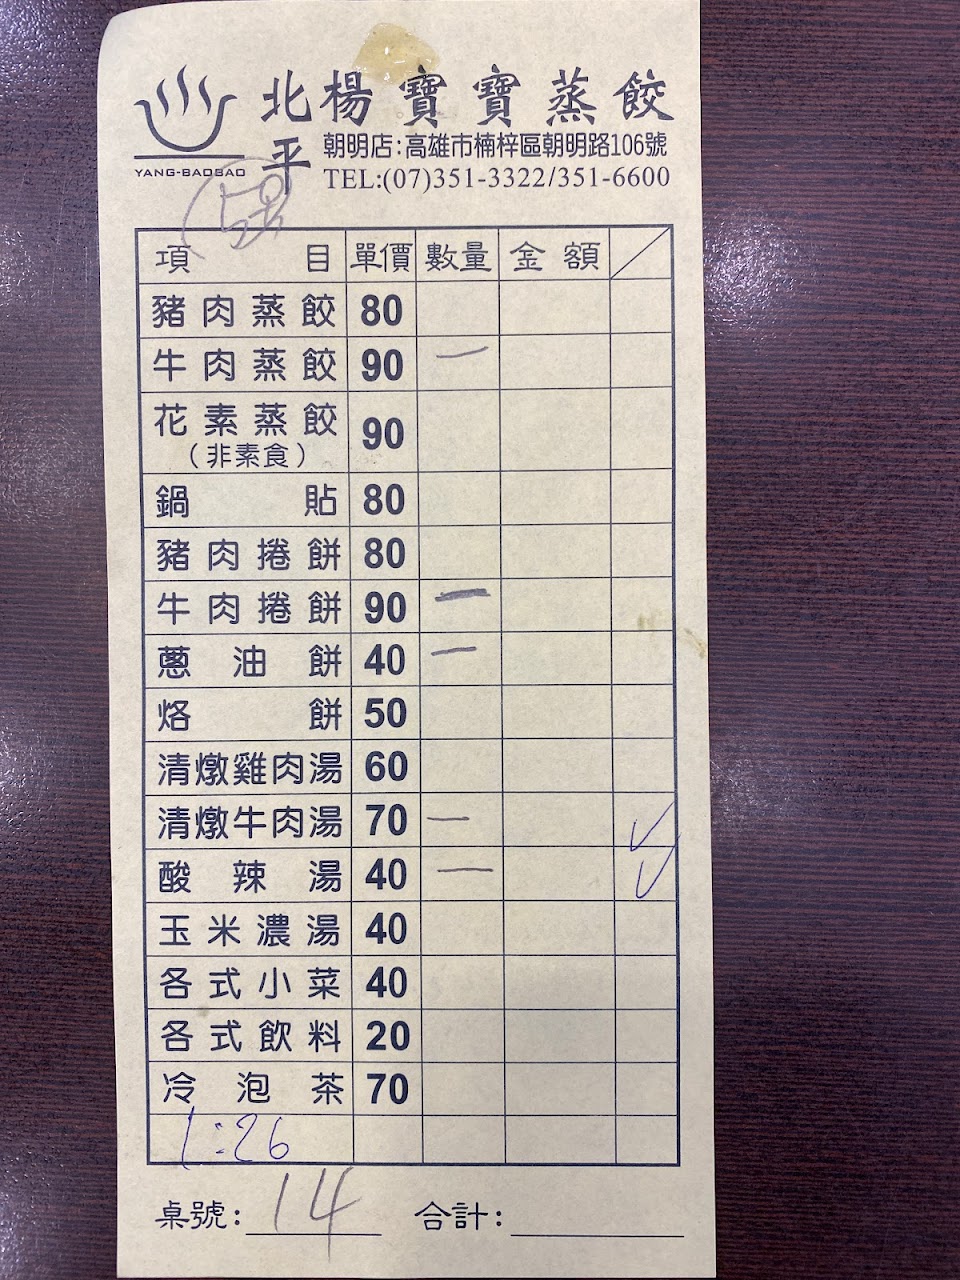 北楊寶寶蒸餃
平
朝明店:高雄市楠梓區朝明路106號
YANG-BAOBAO
TEL:(07)351-3322/351-6600
項目 單價 數量 金額
豬肉蒸餃 80
牛肉蒸餃 90 一
花素蒸餃 90
(非素食)
鍋貼 80
豬肉捲餅 80
牛肉捲餅 90 一
蔥油餅 40 一
烙餅 50
清燉雞肉湯 60
清燉牛肉湯 70 一 ✓
酸辣湯 40 一 ✓
玉米濃湯 40
各式小菜 40
各式飲料 20
冷泡茶 70
1:26
桌號: 14 合計: